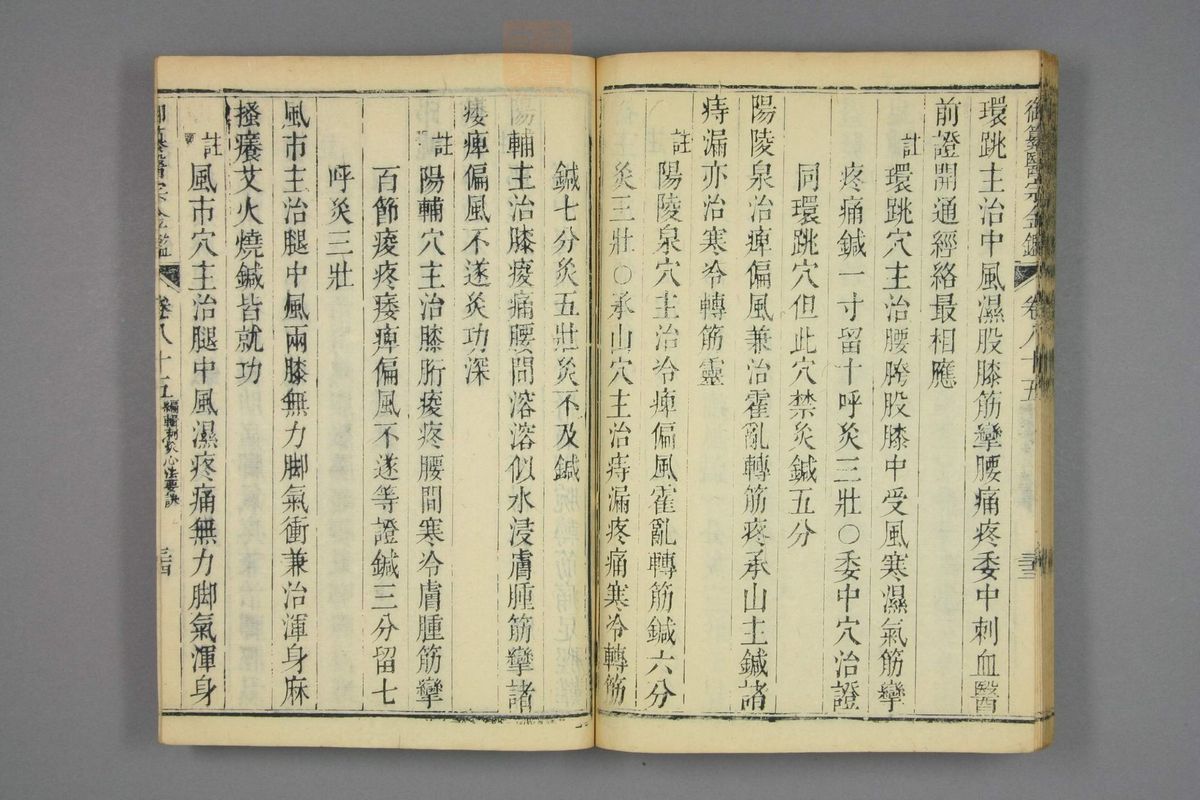 御纂醫宗金鑑 卷八十五 三三
環跳主治中風濕股膝筋攣腰痛疼委中刺血醫
前證開通經絡最相應
註環跳穴主治腰胯股膝中受風寒濕氣筋攣
疼痛鍼一寸留十呼灸三壯○委中穴治證
同環跳穴但此穴禁灸鍼五分
陽陵泉治痺偏風兼治霍亂轉筋疼承山主鍼諸
痔漏亦治寒冷轉筋靈
註陽陵泉穴主治冷痺偏風霍亂轉筋鍼六分
灸三壯○承山穴主治痔漏疼痛寒冷轉筋
鍼七分灸五壯灸不及鍼
陽輔主治膝痠痛腰間溶溶似水浸膚腫筋攣諸
痿痺偏風不遂灸功深
註陽輔穴主治膝胻痠疼腰間寒冷膚腫筋攣
百節痠疼痿痺偏風不遂等證鍼三分留七
呼灸三壯
風市主治腿中風兩膝無力脚氣衝兼治渾身麻
搔癢艾火燒鍼皆就功
註風市穴主治腿中風濕疼痛無力脚氣渾身
御纂醫宗金鑑 卷八十五 編輯刺灸心法要訣 三四